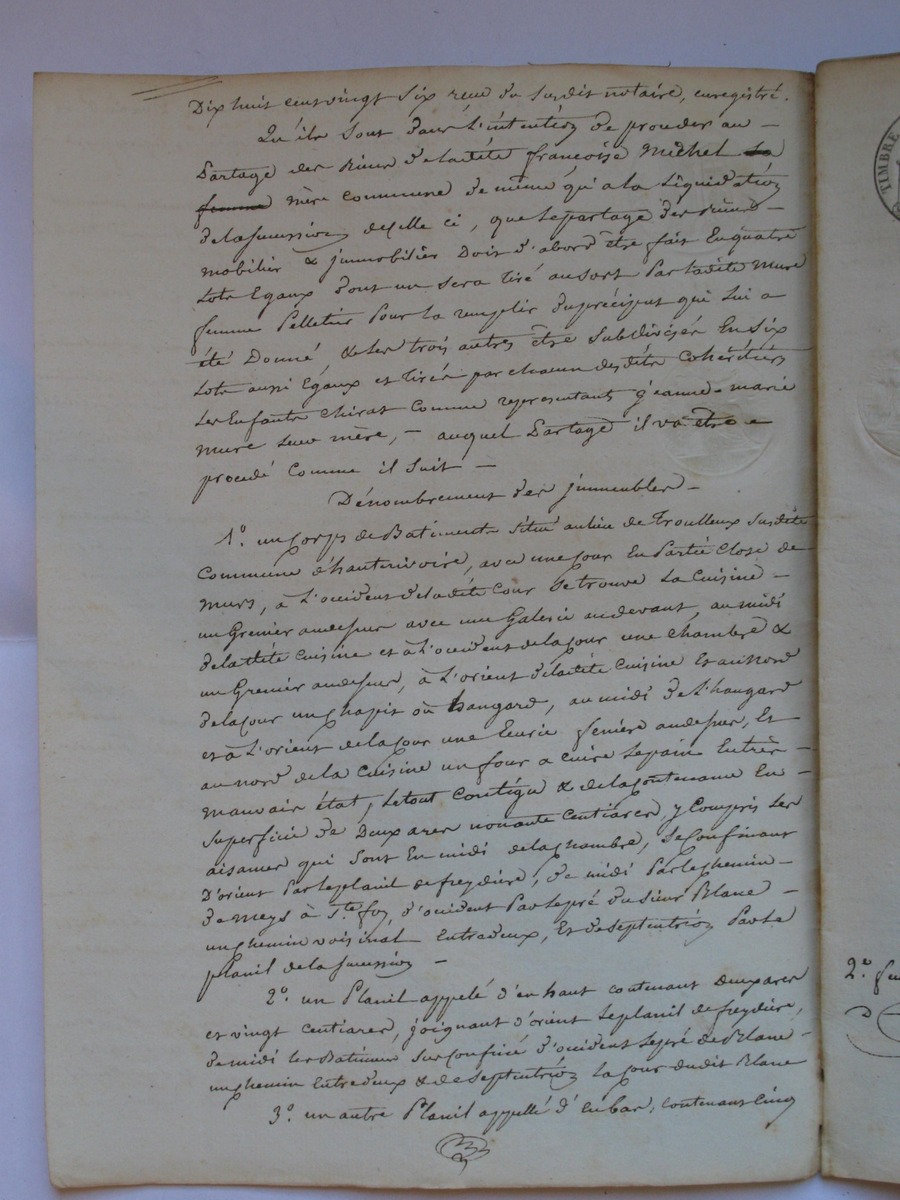 Dix huit cent vingt six reçu du susdit notaire, enregistré.
Qu'ils sont dans l'intention de proceder au -
Partage des biens de ladite françoise Michel
mère commune de même qu'a la Liquidation
de la succession de celle ci, que le partage des biens -
mobilier & jmmobilier Doit d'abord être fait En quatre
Lots Egaux dont un sera tiré au sort Par ladite Mure
femme Pelletier Pour la remplir du préciput qui lui a
été Donné & les trois autres être subdivisés En six
Lots aussi Egaux et tirés par chacun desdits Cohéritiers
Les Enfants Chirat comme representants jeanne-marie
Mure leur mère, - auquel Partage il va être
procedé comme il suit -
Dénombrement des jmmeubles -
1.° un Corps de Batiments situé au lieu de Troulleux susdite
Commune d'hauterivoire, avec une Cour En Partie Close de
murs, à L'occident de ladite Cour se trouve La Cuisine -
un Grenier au dessus avec un Galerie au devant, au midi
de ladite Cuisine et à L'occident de la Cour une Chambre &
un Grenier au dessus, à L'orient de ladite Cuisine Et au Nord
de la Cour un chapit où hangard, au midi de l'hangard
et à L'orient de la Cour une Ecurie feniere au dessus, Et
au nord de la Cuisine un four a Cuire le pain En très -
mauvais état, Le tout Contigu & de la Contenance En -
superficie de Deux ares nonante Centiares, y Compris Les
aisances qui sont En midi de la Chambre, se Confinant
D'orient Par le planil de freydiere, de midi Par le chemin -
de Meys à Ste foy, d'occident Par le pré du sieur Blanc -
un chemin voisinal Entredeux, Et de Septentrion Par le
planil de la succession -
2.° un Planil appelé d'en haut contenant deux ares
et vingt centiares, joignant d'orient le planil de freydiere,
de midi les Batiments sus confinés d'occident le pré de Blanc -
un chemin Entredeux & de Septentrion la Cour dudit Blanc
3.° un autre Planil appellé d'En bas, contenant Cinq
TIMBRE
2.°